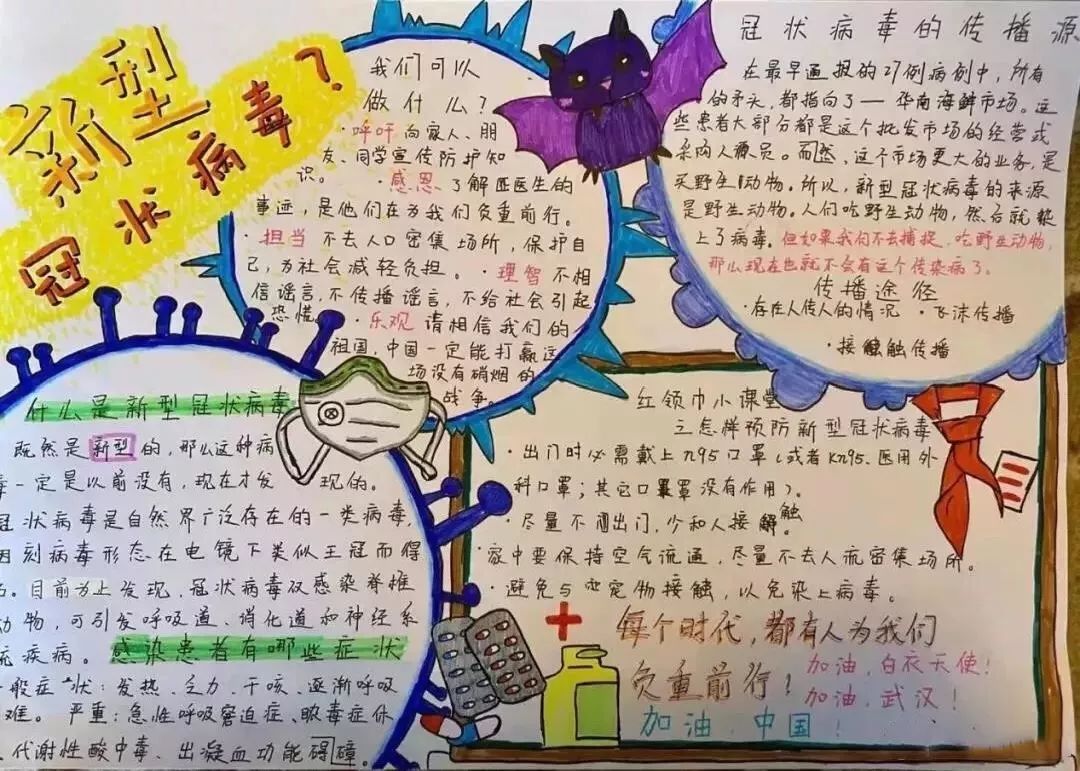 新型
冠状病毒？
我们可以
做什么？
·呼吁 向家人、朋
友、同学宣传防护知
识。 ·感恩 了解医生的
事迹，是他们在为我们负重前行。
·担当 不去人口密集场所，保护自
己，为社会减轻负担。·理智 不相
信谣言，不传播谣言，不给社会引起
恐慌。·乐观 请相信我们的
祖国，中国一定能打赢这
场没有硝烟的
战争。
冠状病毒的传播源
在最早通报的27例病例中，所有
的矛头，都指向了一华南海鲜市场。这
些患者大部分都是这个批发市场的经营或
采购人员。而然，这个市场更大的业务，是
买野生动物。所以，新型冠状病毒的来源
是野生动物。人们吃野生动物，然后就染
上了病毒。但如果我们不去捕捉，吃野生动物，
那么现在也就不会有这个传染病了。
传播途径
·存在人传人的情况 ·飞沫传播
·接触触传播
什么是新型冠状病毒
既然是新型的，那么这种病
毒一定是以前没有，现在才发 现的。
冠状病毒是自然界广泛存在的一类病毒，
因刻病毒形态在电镜下类似王冠而得
名。目前为上发现，冠状病毒仅感染脊椎
动物，可引发呼吸道、消化道和神经系
统疾病。感染患者有哪些症状
一般症状：发热、乏力、干咳、逐渐呼吸
困难。严重：急性呼吸窘迫症、脓毒症休
代谢性酸中毒、出凝血功能碍障。
红领巾小课堂
之怎样预防新型冠状病毒
·出门时必需戴上n95口罩（或者Kn95、医用外
科口罩；其它口罩没有作用）。
·尽量不出门，少和人接触
·家中要保持空气流通，尽量不去人流密集场所。
·避免与宠物接触，以免染上病毒。
每个时代，都有人为我们
负重前行！
加油，白衣天使！
加油，武汉！
加油，中国！